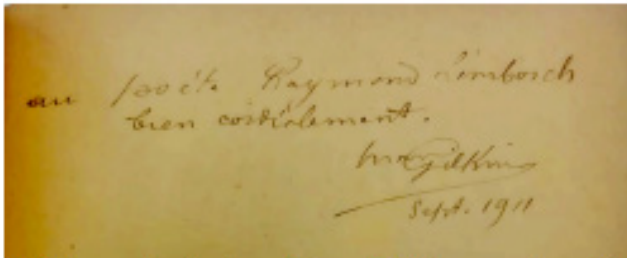 au poète Raymond Limbosch
bien cordialement.
IwanGilkin
Sept. 1911